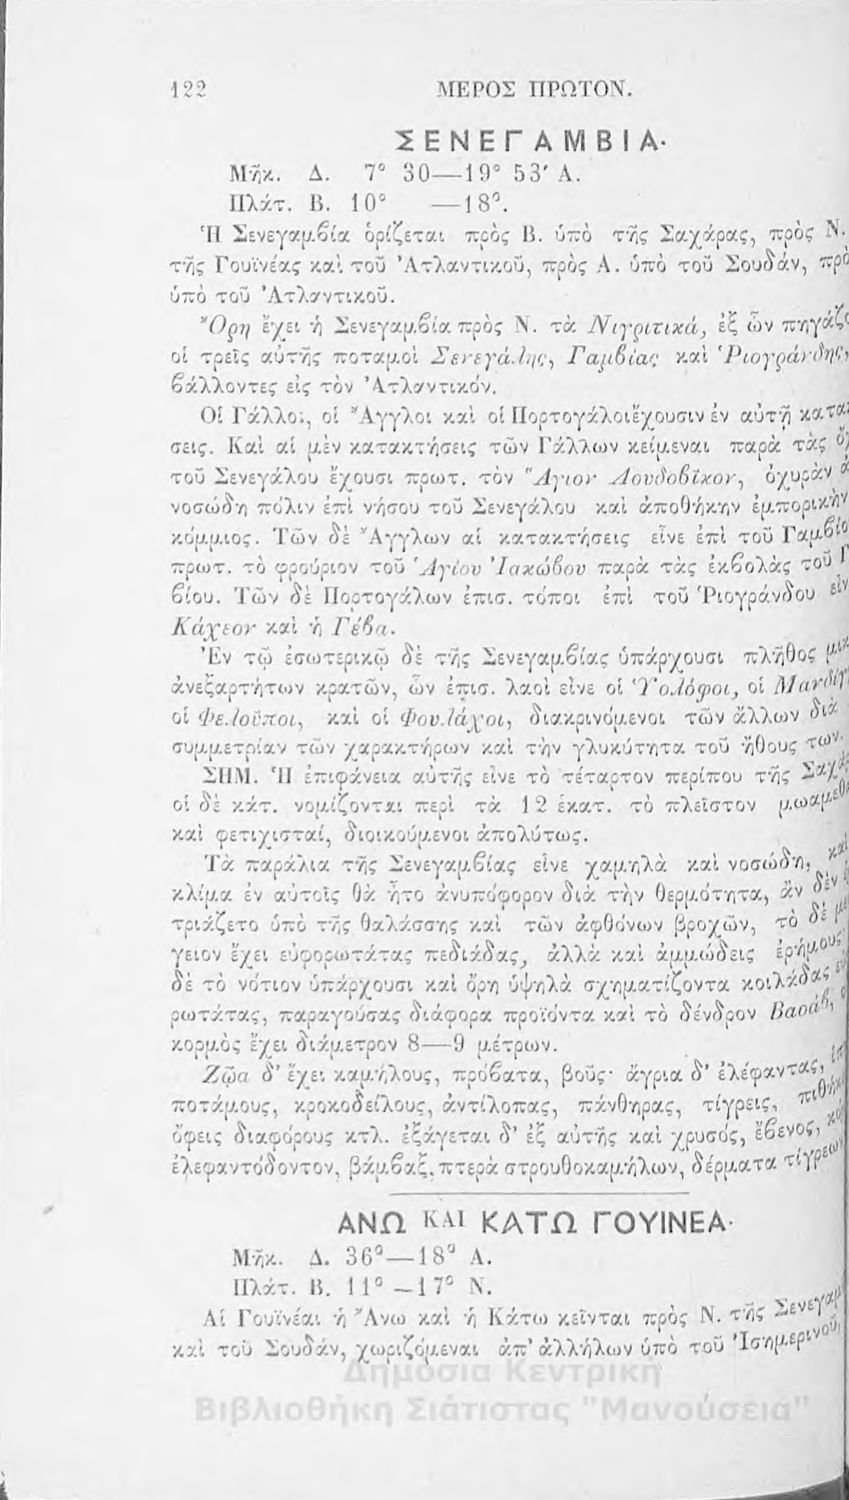 122 ΜΕΡΟΣ ΠΡΩΤΟΝ.
ΣΕΝΕΓΑΜΒΙΑ·
Μῆκ. Δ. 7° 30—19° 53' Α.
Πλάτ. Β. 10° —18°.
Ἡ Σενεγαμβία ὁρίζεται πρὸς Β. ὑπὸ τῆς Σαχάρας, πρὸς Ν.
τῆς Γουϊνέας καὶ τοῦ Ἀτλαντικοῦ, πρὸς Α. ὑπὸ τοῦ Σουδάν, πρὸ
ὑπὸ τοῦ Ἀτλαντικοῦ.
Ὄρη ἔχει ἡ Σενεγαμβία πρὸς Ν. τὰ Νιγριτικά, ἐξ ὧν πηγάζο
οἱ τρεῖς αὐτῆς ποταμοὶ Σενεγάλης, Γαμβίας καὶ Ῥιογράνδης,
βάλλοντες εἰς τὸν Ἀτλαντικόν.
Οἱ Γάλλοι, οἱ Ἄγγλοι καὶ οἱ Πορτογάλοι ἔχουσιν ἐν αὐτῇ κατα
σεις. Καὶ αἱ μὲν κατακτήσεις τῶν Γάλλων κείμεναι παρὰ τὰς
τοῦ Σενεγάλου ἔχουσι πρωτ. τὸν Ἅγιον Λουδοβῖκον, ὀχυρὰν
νοσώδη πόλιν ἐπὶ νήσου τοῦ Σενεγάλου καὶ ἀποθήκην ἐμπορικὴν
κόμμιος. Τῶν δὲ Ἄγγλων αἱ κατακτήσεις εἶνε ἐπὶ τοῦ Γαμβίο
πρωτ. τὸ φρούριον τοῦ Ἁγίου Ἰακώβου παρὰ τὰς ἐκβολὰς τοῦ Γ
βίου. Τῶν δὲ Πορτογάλων ἐπισ. τόποι ἐπὶ τοῦ Ῥιογράνδου εἶν
Κάχεον καὶ ἡ Γέβα.
Ἐν τῷ ἐσωτερικῷ δὲ τῆς Σενεγαμβίας ὑπάρχουσι πλῆθος μικ
ἀνεξαρτήτων κρατῶν, ὧν ἐπισ. λαοὶ εἶνε οἱ Ὑολόφοι, οἱ Μανδίγ
οἱ Φελοῦποι, καὶ οἱ Φουλάχοι, διακρινόμενοι τῶν ἄλλων διὰ
συμμετρίαν τῶν χαρακτήρων καὶ τὴν γλυκύτητα τοῦ ἤθους των.
ΣΗΜ. Ἡ ἐπιφάνεια αὐτῆς εἶνε τὸ τέταρτον περίπου τῆς Σαχά
οἱ δὲ κάτ. νομίζονται περὶ τὰ 12 ἑκατ. τὸ πλεῖστον μωαμεθ
καὶ φετιχισταί, διοικούμενοι ἀπολύτως.
Τὰ παράλια τῆς Σενεγαμβίας εἶνε χαμηλὰ καὶ νοσώδη, καὶ
κλίμα ἐν αὐτοῖς θὰ ἦτο ἀνυπόφορον διὰ τὴν θερμότητα, ἂν δὲν
τριάζετο ὑπὸ τῆς θαλάσσης καὶ τῶν ἀφθόνων βροχῶν, τὸ δὲ με
γειον ἔχει εὐφορωτάτας πεδιάδας, ἀλλὰ καὶ ἀμμώδεις ἐρήμους
δὲ τὸ νότιον ὑπάρχουσι καὶ ὄρη ὑψηλὰ σχηματίζοντα κοιλάδας
ρωτάτας, παραγούσας διάφορα προϊόντα καὶ τὸ δένδρον Βαοάβ,
κορμὸς ἔχει διάμετρον 8—9 μέτρων.
Ζῷα δ' ἔχει καμήλους, πρόβατα, βοῦς· ἄγρια δ' ἐλέφαντας, ἱπ
ποτάμους, κροκοδείλους, ἀντίλοπας, πάνθηρας, τίγρεις, πιθή
ὄφεις διαφόρους κτλ. ἐξάγεται δ' ἐξ αὐτῆς καὶ χρυσός, ἔβενος,
ἐλεφαντόδοντον, βάμβαξ, πτερὰ στρουθοκαμήλων, δέρματα τίγρεω
ΑΝΩ ΚΑΙ ΚΑΤΩ ΓΟΥΙΝΕΑ·
Μῆκ. Δ. 36°—18° Α.
Πλάτ. Β. 11° —17° Ν.
Αἱ Γουϊνέαι ἡ Ἄνω καὶ ἡ Κάτω κεῖνται πρὸς Ν. τῆς Σενεγαμ
καὶ τοῦ Σουδάν, χωριζόμεναι ἀπ' ἀλλήλων ὑπὸ τοῦ Ἰσημερινοῦ,
Δημόσια Κεντρική
Βιβλιοθήκη Σιάτιστας "Μανούσεια"